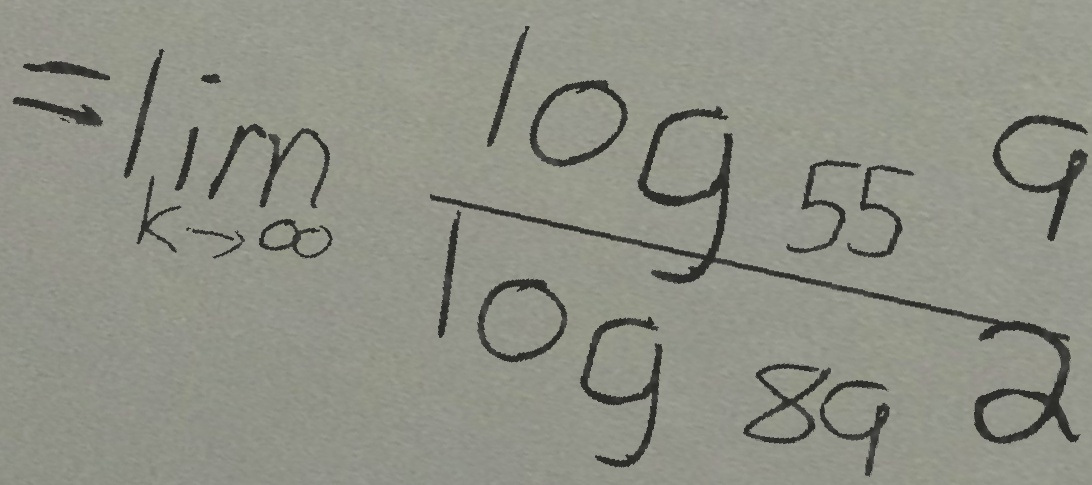 = lim_{k→∞} \frac{log_{55} 9}{log_{89} 2}